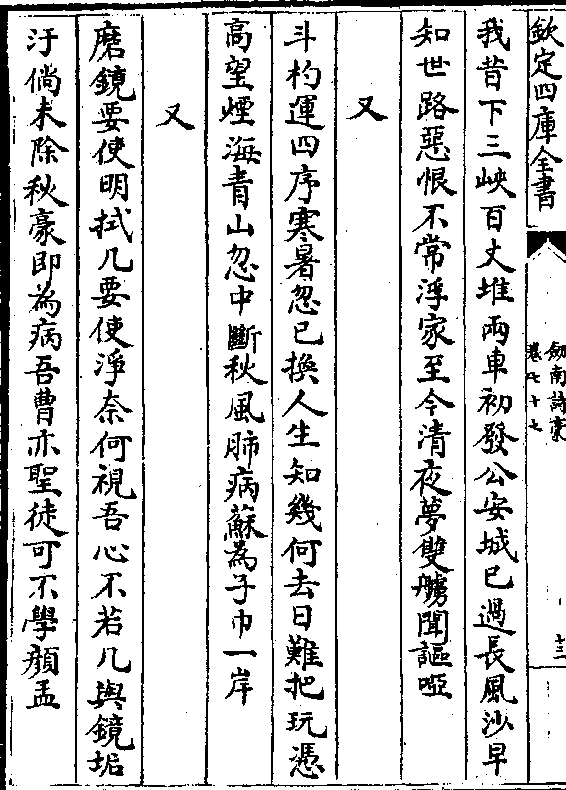 欽定四庫全書
劒南詩稾
卷七十七
十三
我昔下三峽百丈堆兩車初發公安城已過長風沙早
知世路惡恨不常浮家至今清夜夢雙艣聞謳啞
又
斗杓運四序寒暑忽已換人生知幾何去日難把玩憑
高望煙海青山忽中斷秋風肺病蘇為子巾一岸
又
磨鏡要使明拭几要使淨奈何視吾心不若几與鏡垢
汙倘未除秋豪即為病吾曹亦聖徒可不學顔孟